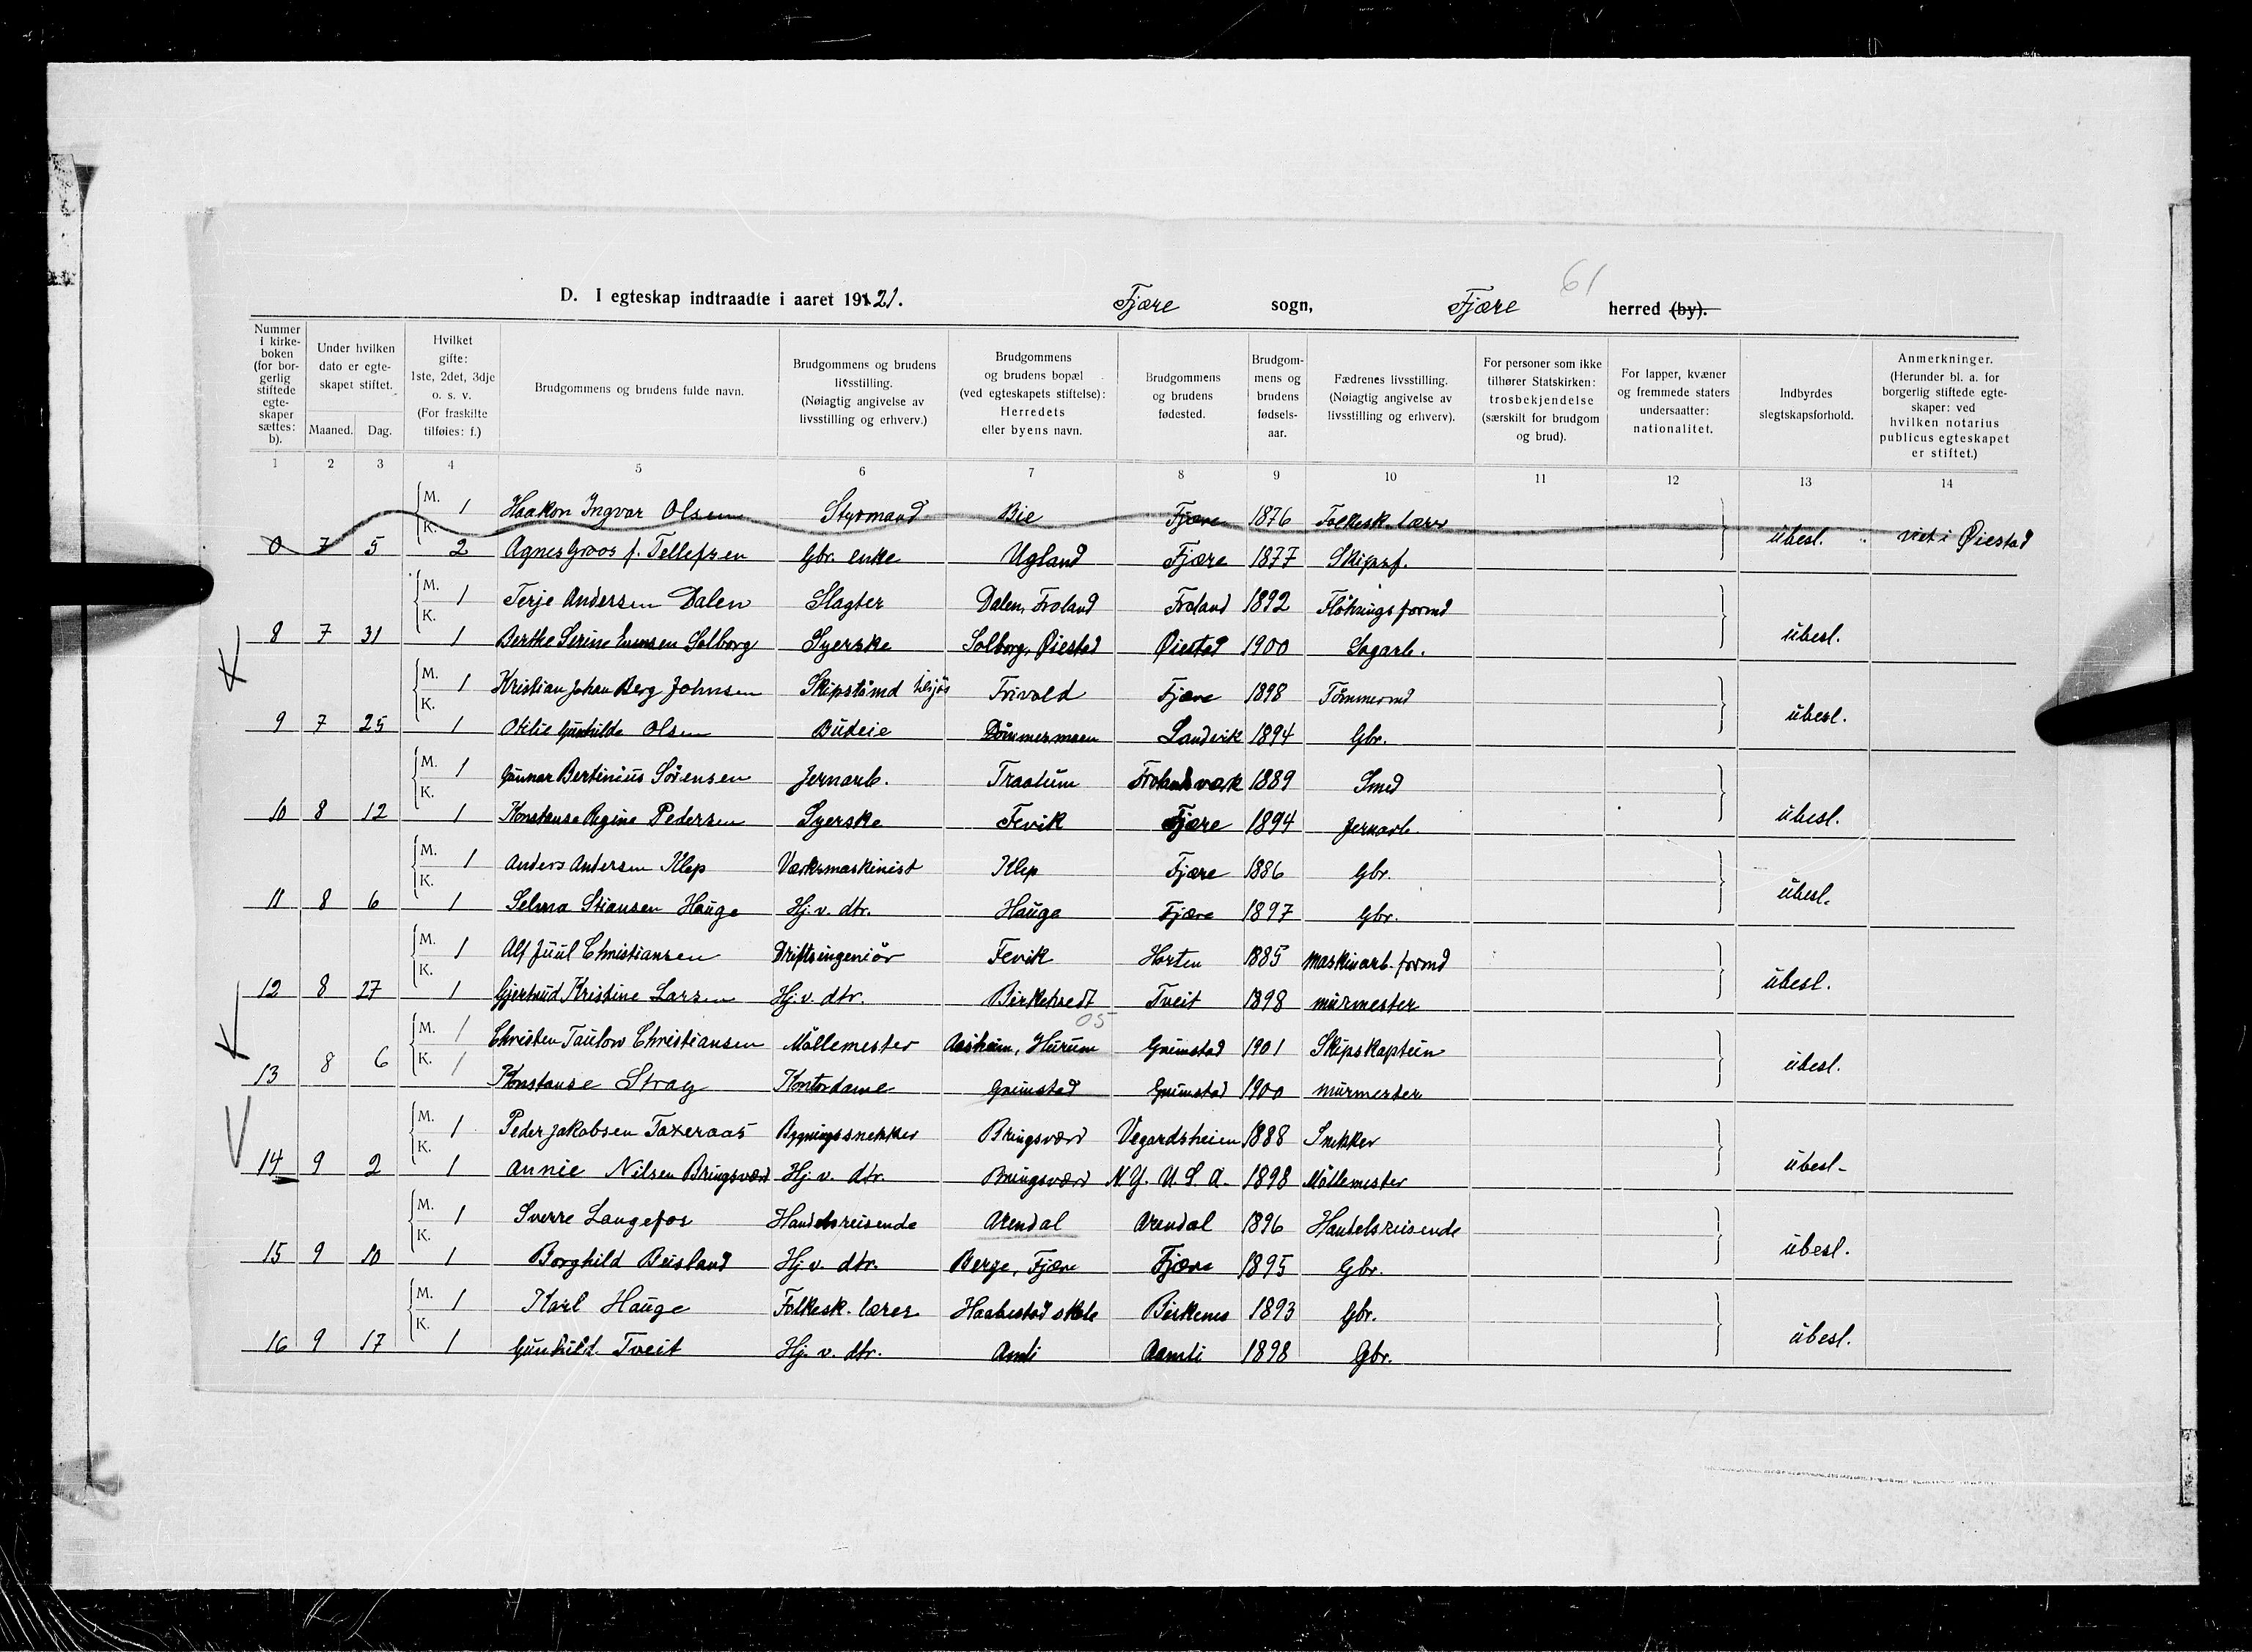 61
D. I egteskap indtraadte i aaret 1921. Fjære sogn, Fjære herred (by).
Nummer i kirkeboken (for borgerlig stiftede egteskaper sættes: b). Under hvilken dato er egteskapet stiftet. Maaned. Dag. Hvilket gifte: 1ste, 2det, 3dje o. s. v. (For fraskilte tilføies: f.) Brudgommens og brudens fulde navn. Brudgommens og brudens livsstilling. (Nøiagtig angivelse av livsstilling og erhverv.) Brudgommens og brudens bopæl (ved egteskapets stiftelse): Herredets eller byens navn. Brudgommens og brudens fødested. Brudgommens og brudens fødselsaar. Fædrenes livsstilling. (Nøiagtig angivelse av livsstilling og erhverv). For personer som ikke tilhører Statskirken: trosbekjendelse (særskilt for brudgom og brud). For lapper, kvæner og fremmede staters undersaatter: nationalitet. Indbyrdes slegtskapsforhold. Anmerkninger. (Herunder bl. a. for borgerlig stiftede egteskaper: ved hvilken notarius publicus egteskapet er stiftet.)
1 2 3 4 5 6 7 8 9 10 11 12 13 14
M. 1 Haakon Ingvar Olsen Styrmand Bie Fjære 1876 Folkesk. lærer
0 7 5 K. 2 Agnes Groos f. Tellefsen Gbr. enke Ugland Fjære 1877 Skipsf. übesl. viet i Øiestad
M. 1 Terje Andersen Dalen Slagter Dalen, Froland Froland 1892 Fløtningsformd
8 7 31 K. 1 Berthe Serine Solborg Syerske Solborg, Øiestad Øiestad 1900 Sagarb. übesl.
M. 1 Kristian Johan Berg Johnsen Skipstømd tilsjøs Frivold Fjære 1898 Tømmermd
9 7 25 K. 1 Otilie Gunhilde Olsen Budeie Dømmesmoen Landvik 1894 Gbr. übesl.
M. 1 Gunnar Bertinius Sørensen Jernarb. Traalum Frolandsværk 1889 Smed
10 8 12 K. 1 Konstanse Regine Pedersen Syerske Fevik Fjære 1894 Jernarb. übesl.
M. 1 Anders Andersen Klep Værksmaskinist Klep Fjære 1886 Gbr.
11 8 6 K. 1 Selma Stiansen Hauge Hj. v. dtr. Hauge Fjære 1897 Gbr. übesl.
M. 1 Alf Juul Christiansen Driftsingeniør Fevik Horten 1885 maskinarb. formd
12 8 27 K. 1 Gjertrud Kristine Larsen Hj. v. dtr. Birketvedt Tveit 1898 murmester übesl.
05
M. 1 Christen Taulow Christiansen Møllemester Aasheim, Hurum Grimstad 1901 Skipskaptein
13 8 6 K. 1 Konstanse Stray Kontordame Grimstad Grimstad 1900 murmester übesl.
M. 1 Peder Jakobsen Taxeraas Bygningssnekker Bringsværd Vegardsheien 1888 Snekker
14 9 2 K. 1 Annie Nilsen Bringsværd Hj. v. dtr. Bringsværd N. Y. U. S. A. 1898 Møllemester übesl.
M. 1 Sverre Langefos Handelsreisende Arendal Arendal 1896 Handelsreisende
15 9 10 K. 1 Borghild Beisland Hj. v. dtr. Berge, Fjære Fjære 1895 Gbr. übesl.
M. 1 Karl Hauge Folkesk. lærer Haabestad skole Birkenes 1893 Gbr.
16 9 17 K. 1 Gunhild Tveit Hj. v. dtr. Amli Aamli 1898 Gbr. übesl.